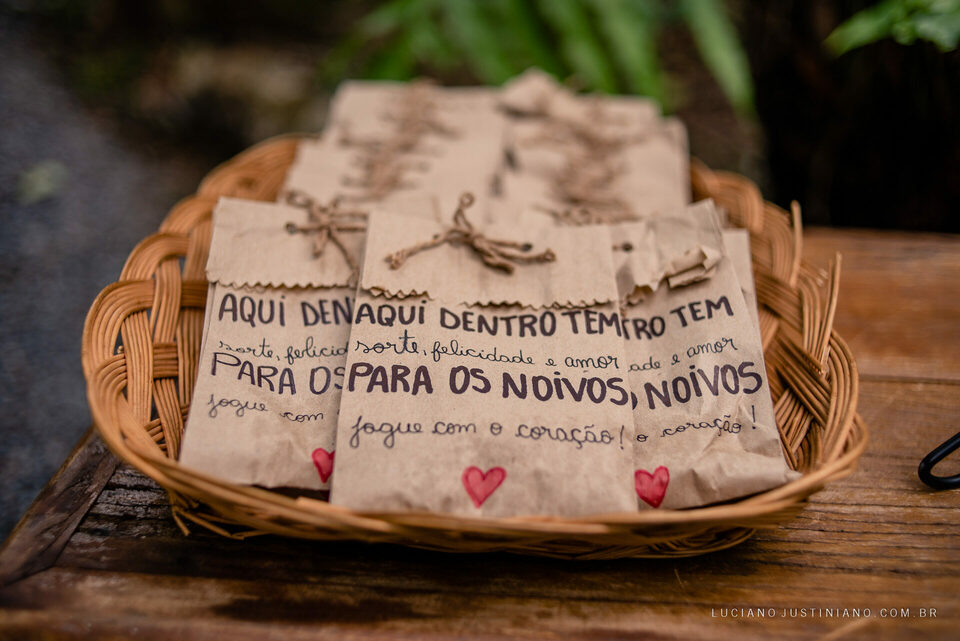 AQUI DEN
sorte, felicid
PARA OS
jogue com
AQUI DENTRO TEM
sorte, felicidade e amor
PARA OS NOIVOS
jogue com o coração!
TRO TEM
dade e amor
NOIVOS
o coração!
LUCIANOJUSTINIANO.COM.BR